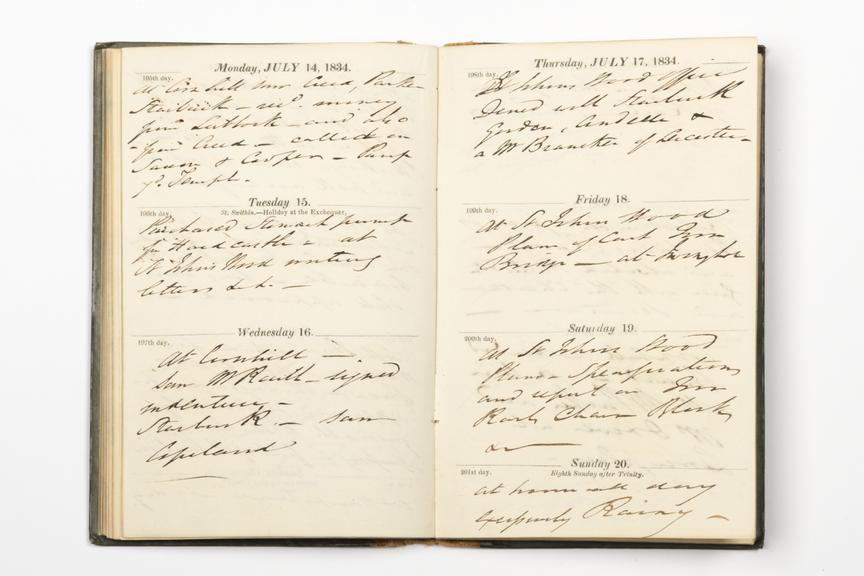 Monday, JULY 14, 1834.
195th day.
At Cornhill saw Creed, Parker
Starbuck - recd. money
from Lubbock - and also
from Creed - called on
& Cooper - Pump
Temple.
Tuesday 15.
196th day.
St. Swithin.—Holiday at the Exchequer.
Purchased Stomach pump
for Hardcastle - at
St Johns Wood writing
letters &c. -
Wednesday 16.
197th day.
At Cornhill -
Saw - signed
indenture -
Starbuck - saw
Copeland
Thursday, JULY 17, 1834.
198th day.
St Johns Wood Office
Dined with Starbuck
Gordon, &
a Mr of Leicester -
Friday 18.
199th day.
At St Johns Wood
Plans of Cast Iron
Bridge - at
Saturday 19.
200th day.
At St Johns Wood
Plans - Specifications
and report on Iron
Rails Chairs Blocks
&c
Sunday 20.
201st day.
Eighth Sunday after Trinity.
at home all day
Rainy -